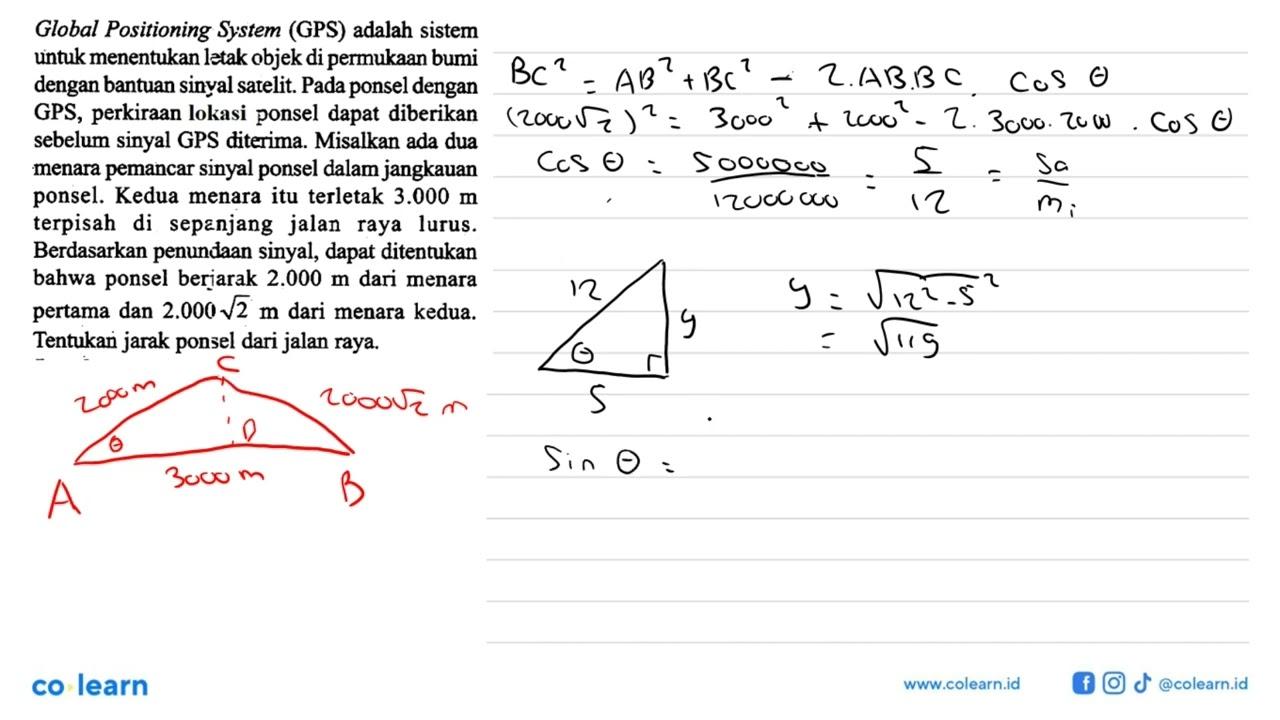 Global Positioning System (GPS) adalah sistem
untuk menentukan letak objek di permukaan bumi
dengan bantuan sinyal satelit. Pada ponsel dengan
GPS, perkiraan lokasi ponsel dapat diberikan
sebelum sinyal GPS diterima. Misalkan ada dua
menara pemancar sinyal ponsel dalam jangkauan
ponsel. Kedua menara itu terletak 3.000 m
terpisah di sepanjang jalan raya lurus.
Berdasarkan penundaan sinyal, dapat ditentukan
bahwa ponsel berjarak 2.000 m dari menara
pertama dan 2.000√2 m dari menara kedua.
Tentukan jarak ponsel dari jalan raya.
C
2000 m
2000√2 m
θ
D
3000 m
A
B
BC² = AB² + BC² - 2.AB.BC. cos θ
(2000√2)² = 3000² + 2000² - 2. 3000. 2000 . cos θ
cos θ = 5000000/12000000 = 5/12 = sa/mi
12
y
θ
5
y = √12² - 5²
= √119
sin θ =
co learn
www.colearn.id
@colearn.id